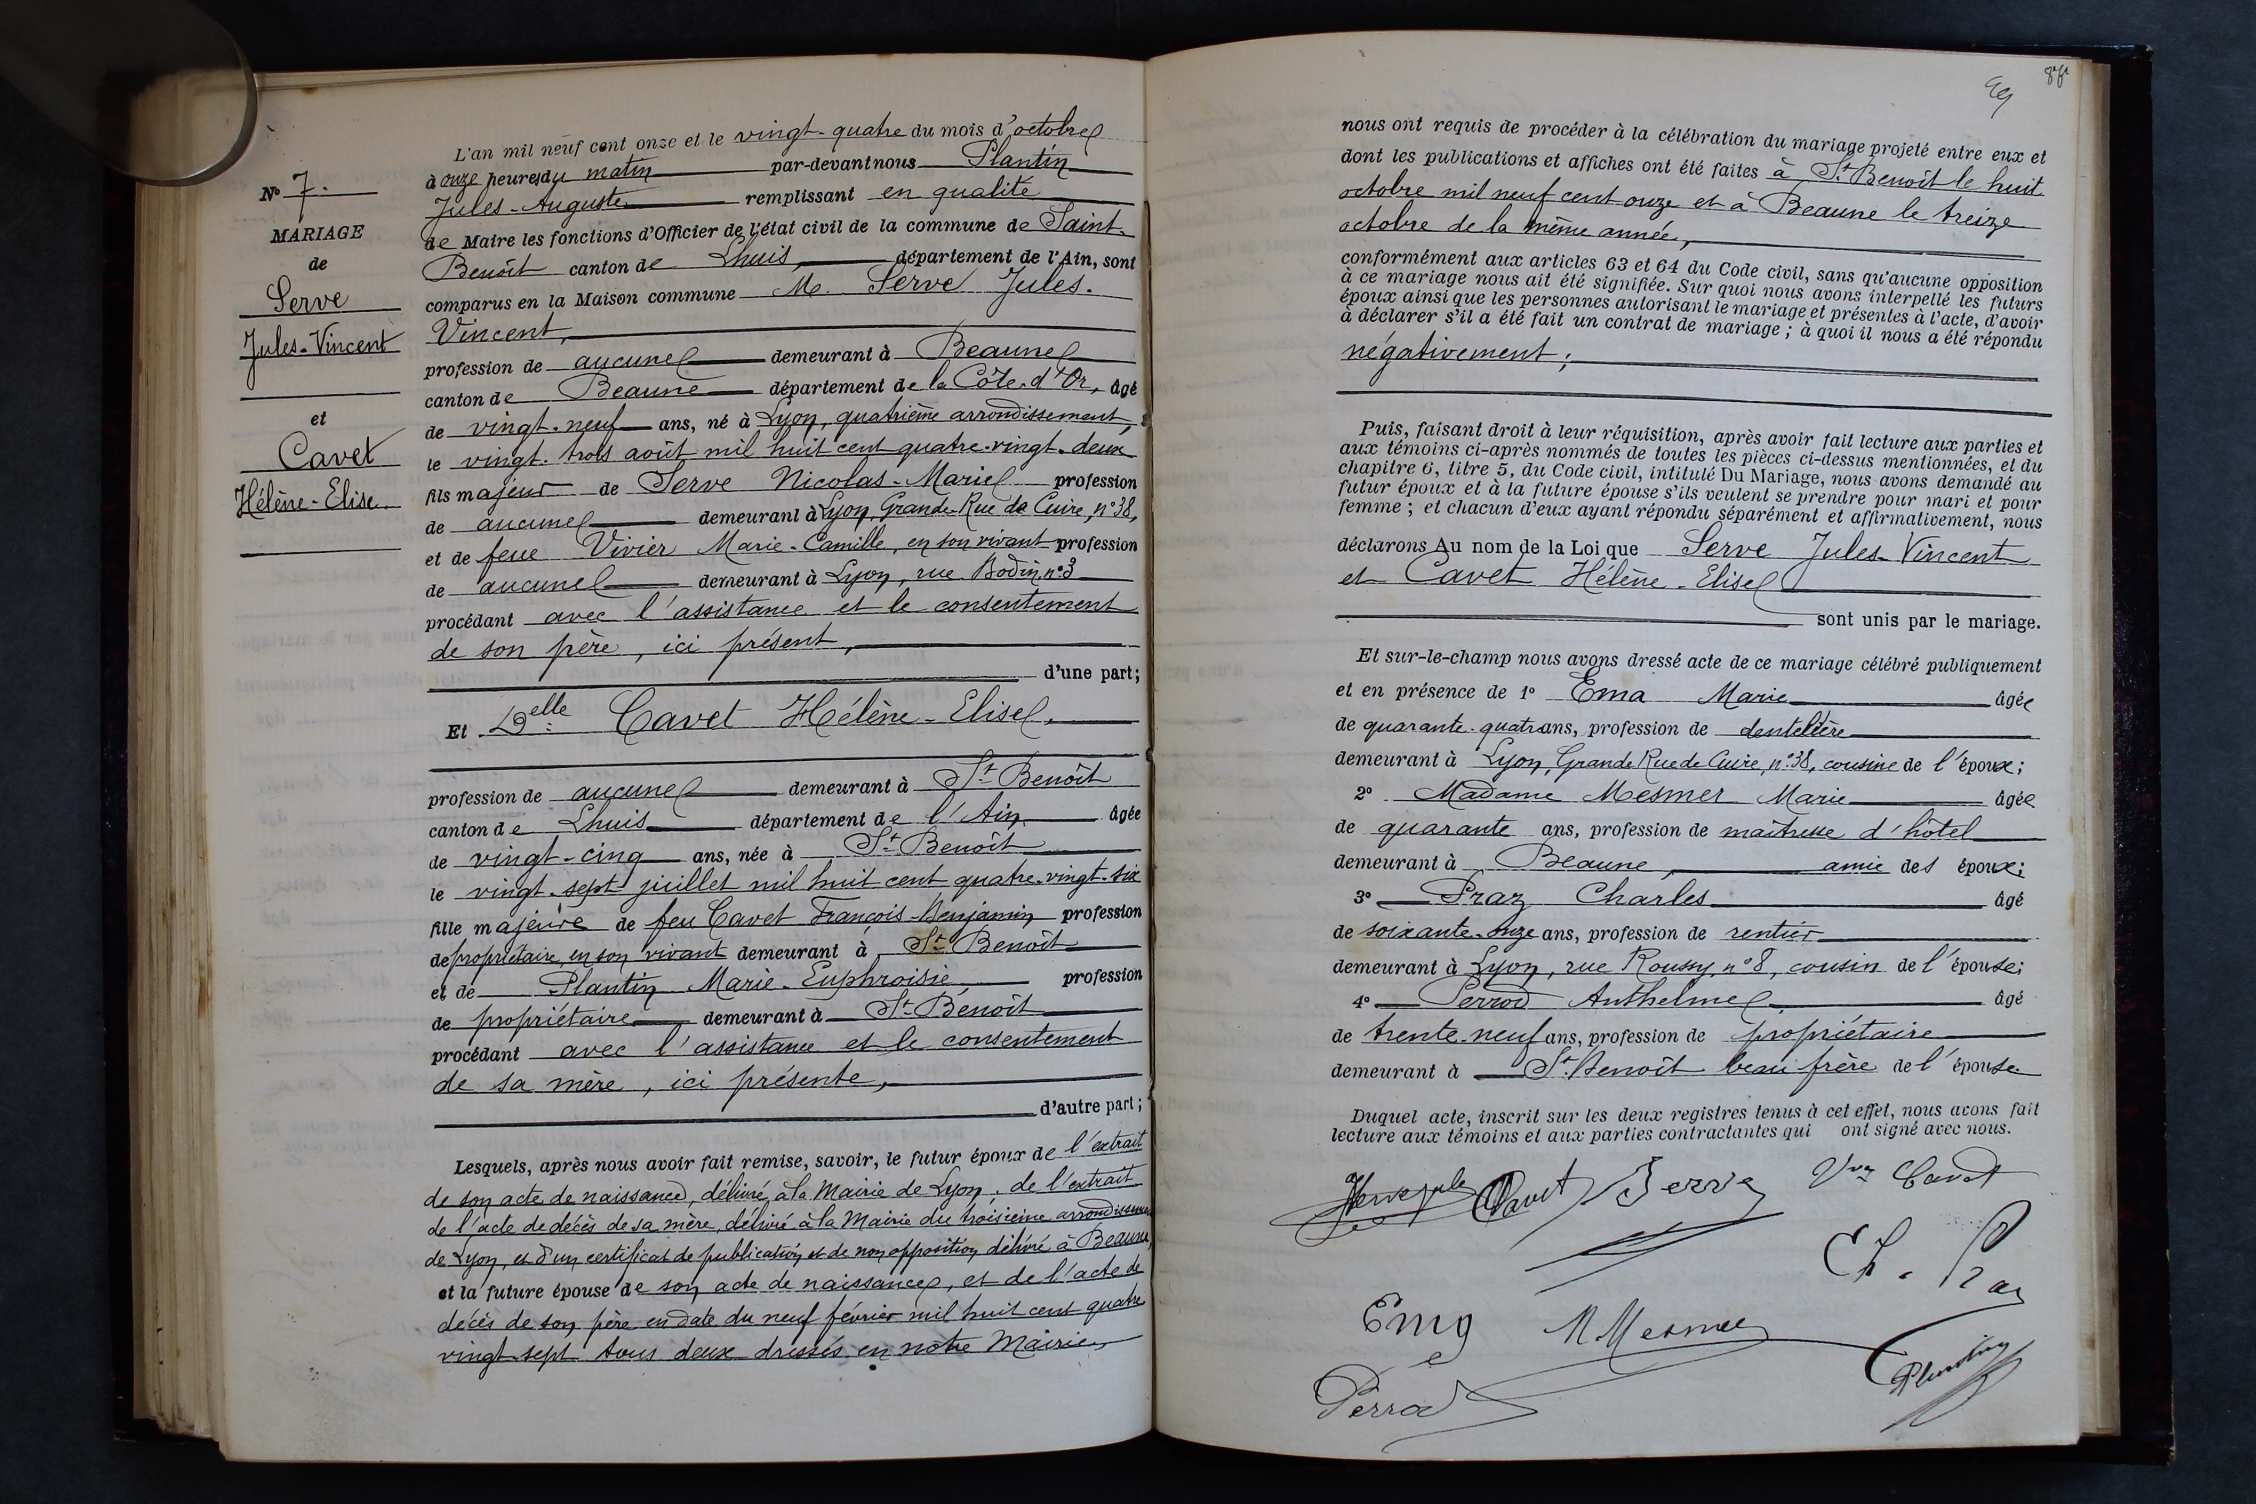 N° 7.
MARIAGE
de
Serve
Jules-Vincent
et
Cavet
Hélène-Elise
L'an mil neuf cent onze et le vingt-quatre du mois d'octobre
à onze heures du matin par-devant nous Plantin
Jules-Auguste remplissant en qualité
de Maire les fonctions d'Officier de l'état civil de la commune de Saint-
Benoît canton de Lhuis, département de l'Ain, sont
comparus en la Maison commune M. Serve Jules-
Vincent,
profession de aucune demeurant à Beaune
canton de Beaune département de la Côte-d'Or, âgé
de vingt-neuf ans, né à Lyon, quatrième arrondissement,
le vingt-trois août mil huit cent quatre-vingt-deux
fils majeur de Serve Nicolas-Marie profession
de aucune demeurant à Lyon, Grande-Rue de Cuire, n° 38,
et de feue Vivier Marie-Camille, en son vivant profession
de aucune demeurant à Lyon, rue Bodin, n° 3
procédant avec l'assistance et le consentement
de son père, ici présent,
d'une part;
Et Delle Cavet Hélène-Elise,
profession de aucune demeurant à St Benoît
canton de Lhuis département de l'Ain âgée
de vingt-cinq ans, née à St Benoît
le vingt-sept juillet mil huit cent quatre-vingt-six
fille majeure de feu Cavet François-Benjamin profession
de propriétaire, en son vivant demeurant à St Benoît
et de Plantin Marie-Euphroisie, profession
de propriétaire demeurant à St Benoît
procédant avec l'assistance et le consentement
de sa mère, ici présente,
d'autre part;
Lesquels, après nous avoir fait remise, savoir, le futur époux de l'extrait
de son acte de naissance, délivré à la Mairie de Lyon; de l'extrait
de l'acte de décès de sa mère, délivré à la Mairie du troisième arrondissement
de Lyon, et d'un certificat de publication et de non opposition, délivré à Beaune,
et la future épouse de son acte de naissance, et de l'acte de
décès de son père en date du neuf février mil huit cent quatre
vingt-sept tous deux dressés en notre Mairie,
99
nous ont requis de procéder à la célébration du mariage projeté entre eux et
dont les publications et affiches ont été faites à St Benoît le huit
octobre mil neuf cent onze et à Beaune le treize
octobre de la même année,
conformément aux articles 63 et 64 du Code civil, sans qu'aucune opposition
à ce mariage nous ait été signifiée. Sur quoi nous avons interpellé les futurs
époux ainsi que les personnes autorisant le mariage et présentes à l'acte, d'avoir
à déclarer s'il a été fait un contrat de mariage; à quoi il nous a été répondu
négativement;
Puis, faisant droit à leur réquisition, après avoir fait lecture aux parties et
aux témoins ci-après nommés de toutes les pièces ci-dessus mentionnées, et du
chapitre 6, titre 5, du Code civil, intitulé Du Mariage, nous avons demandé au
futur époux et à la future épouse s'ils veulent se prendre pour mari et pour
femme; et chacun d'eux ayant répondu séparément et affirmativement, nous
déclarons Au nom de la Loi que Serve Jules-Vincent
et Cavet Hélène-Elise
sont unis par le mariage.
Et sur-le-champ nous avons dressé acte de ce mariage célébré publiquement
et en présence de 1° Ema Marie âgée
de quarante-quatre ans, profession de dentelière
demeurant à Lyon, Grande Rue de Cuire, n° 38, cousine de l'époux;
2° Madame Mesmer Marie âgée
de quarante ans, profession de maîtresse d'hôtel
demeurant à Beaune, amie des époux;
3° Praz Charles âgé
de soixante-onze ans, profession de rentier
demeurant à Lyon, rue Roussy, n° 8, cousin de l'épouse;
4° Perrod Anthelme âgé
de trente-neuf ans, profession de propriétaire
demeurant à St Benoît beau frère de l'épouse
Duquel acte, inscrit sur les deux registres tenus à cet effet, nous avons fait
lecture aux témoins et aux parties contractantes qui ont signé avec nous.
Serve Jule Cavet Serve Vve Cavet
Ch. Praz
Ema M Mesmer
Perrod Plantin